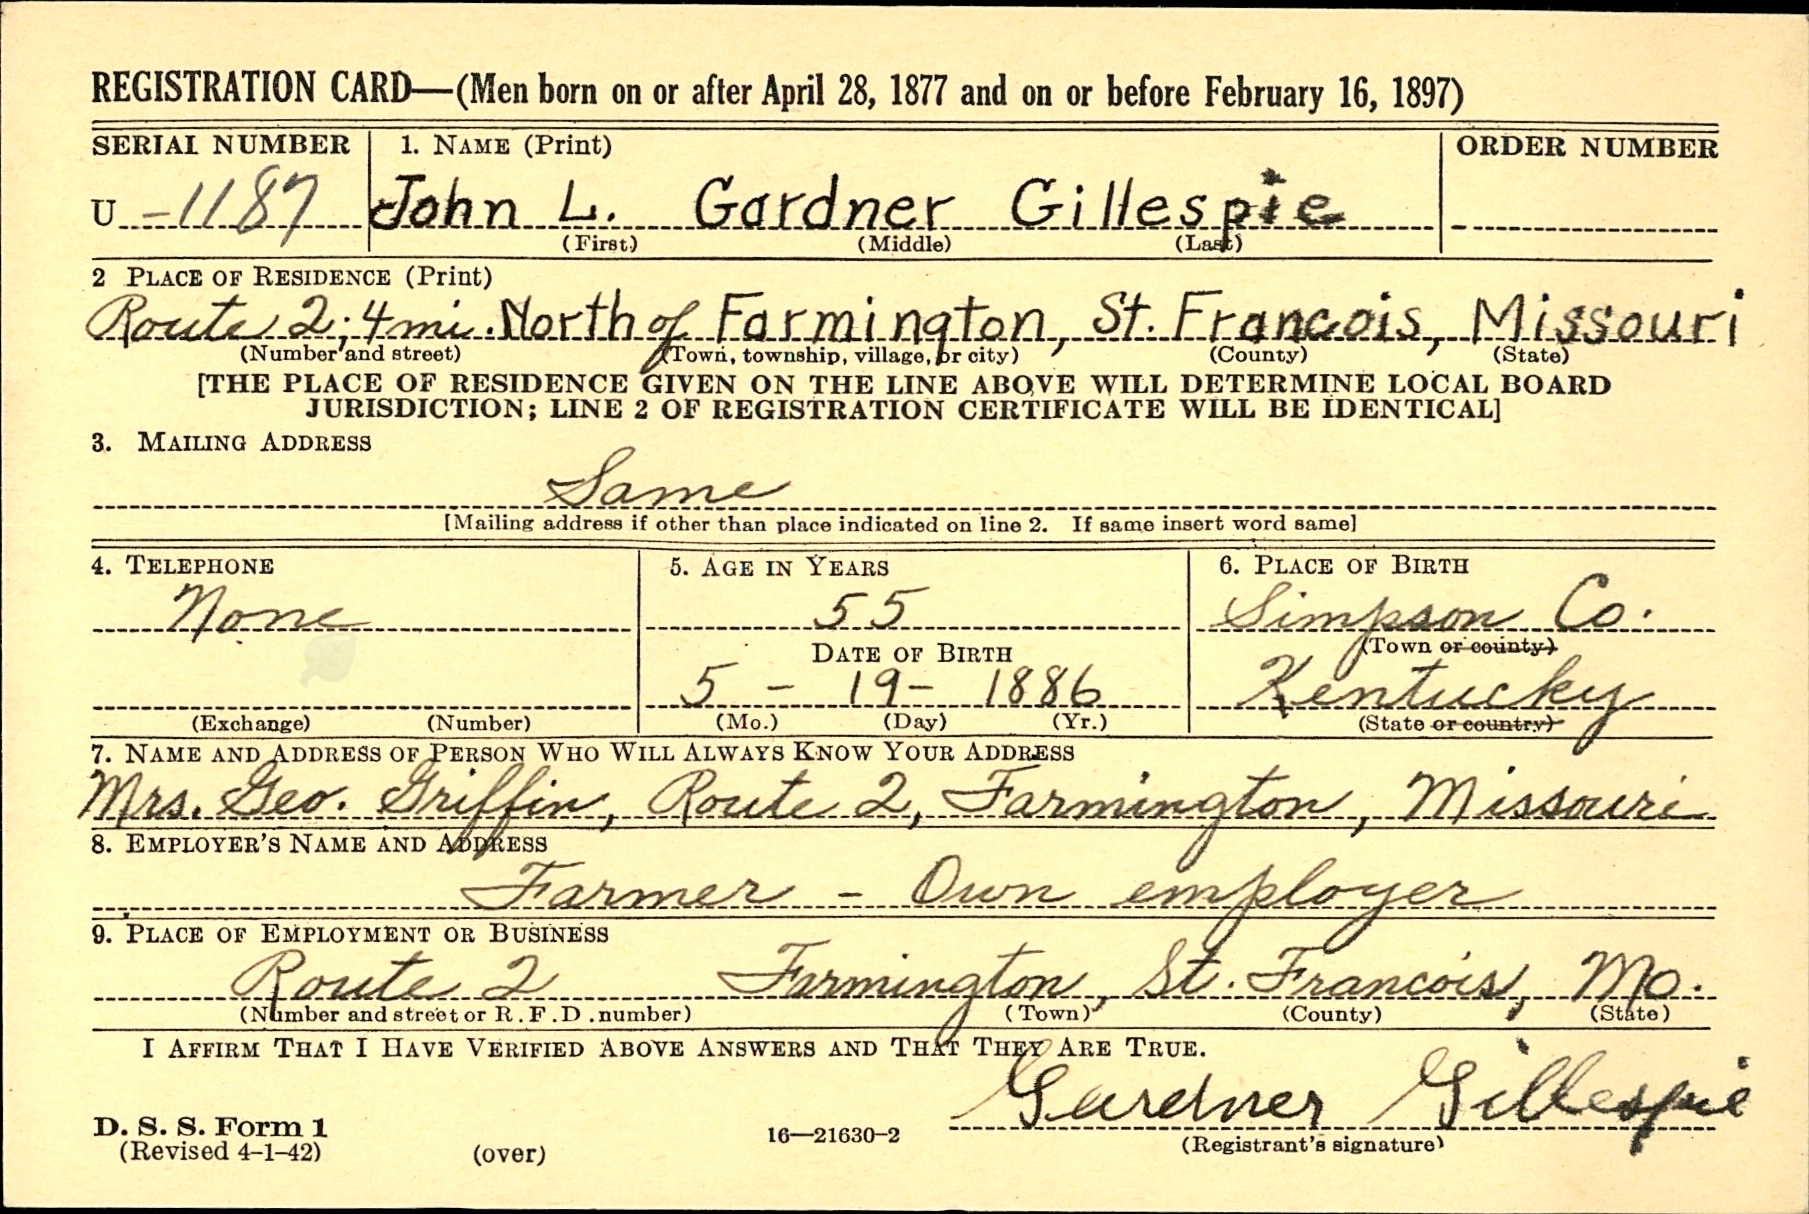 REGISTRATION CARD—(Men born on or after April 28, 1877 and on or before February 16, 1897)
SERIAL NUMBER 1. NAME (Print) ORDER NUMBER
U -1187 John L. Gardner Gillespie
(First) (Middle) (Last)
2 PLACE OF RESIDENCE (Print)
Route 2; 4 mi. North of Farmington, St. Francois, Missouri
(Number and street) (Town, township, village, or city) (County) (State)
[THE PLACE OF RESIDENCE GIVEN ON THE LINE ABOVE WILL DETERMINE LOCAL BOARD
JURISDICTION; LINE 2 OF REGISTRATION CERTIFICATE WILL BE IDENTICAL]
3. MAILING ADDRESS
Same
[Mailing address if other than place indicated on line 2. If same insert word same]
4. TELEPHONE 5. AGE IN YEARS 6. PLACE OF BIRTH
None 55 Simpson Co.
DATE OF BIRTH (Town or county)
5 - 19 - 1886 Kentucky
(Exchange) (Number) (Mo.) (Day) (Yr.) (State or country)
7. NAME AND ADDRESS OF PERSON WHO WILL ALWAYS KNOW YOUR ADDRESS
Mrs. Geo. Griffin, Route 2, Farmington, Missouri
8. EMPLOYER'S NAME AND ADDRESS
Farmer - Own employer
9. PLACE OF EMPLOYMENT OR BUSINESS
Route 2 Farmington, St. Francois, Mo.
(Number and street or R.F.D. number) (Town) (County) (State)
I AFFIRM THAT I HAVE VERIFIED ABOVE ANSWERS AND THAT THEY ARE TRUE.
Gardner Gillespie
D. S. S. Form 1
(Revised 4-1-42) (over) 16—21630-2 (Registrant's signature)